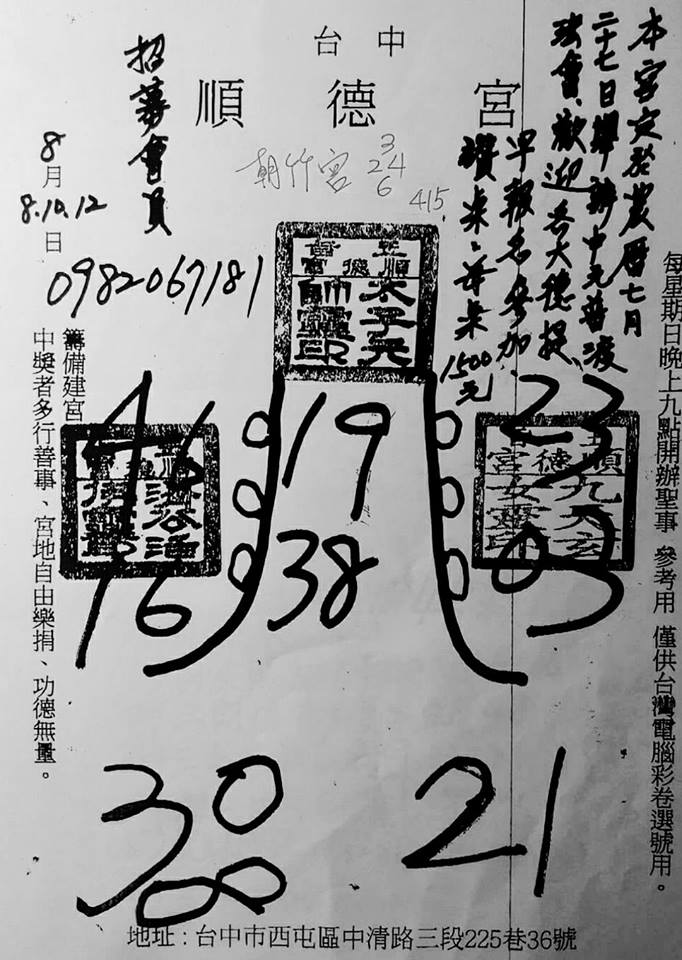 台中
順德宮
本宮定於農曆七月
二十七日舉辦中元普渡
法會、歡迎各大德提
早報名參加
讚桌、普桌
1500元
招募會員
8月
8.10.12日
0982067181
朝竹宮
3
24
6
415
每星期日晚上九點開辦聖事 參考用 僅供台灣電腦彩卷選號用。
正順
德
宮
太子元
帥靈印
順
九天玄
女靈印
籌備建宮
中獎者多行善事、宮地自由樂捐、功德無量。
46
19
23
16
38
03
30
21
地址：台中市西屯區中清路三段225巷36號